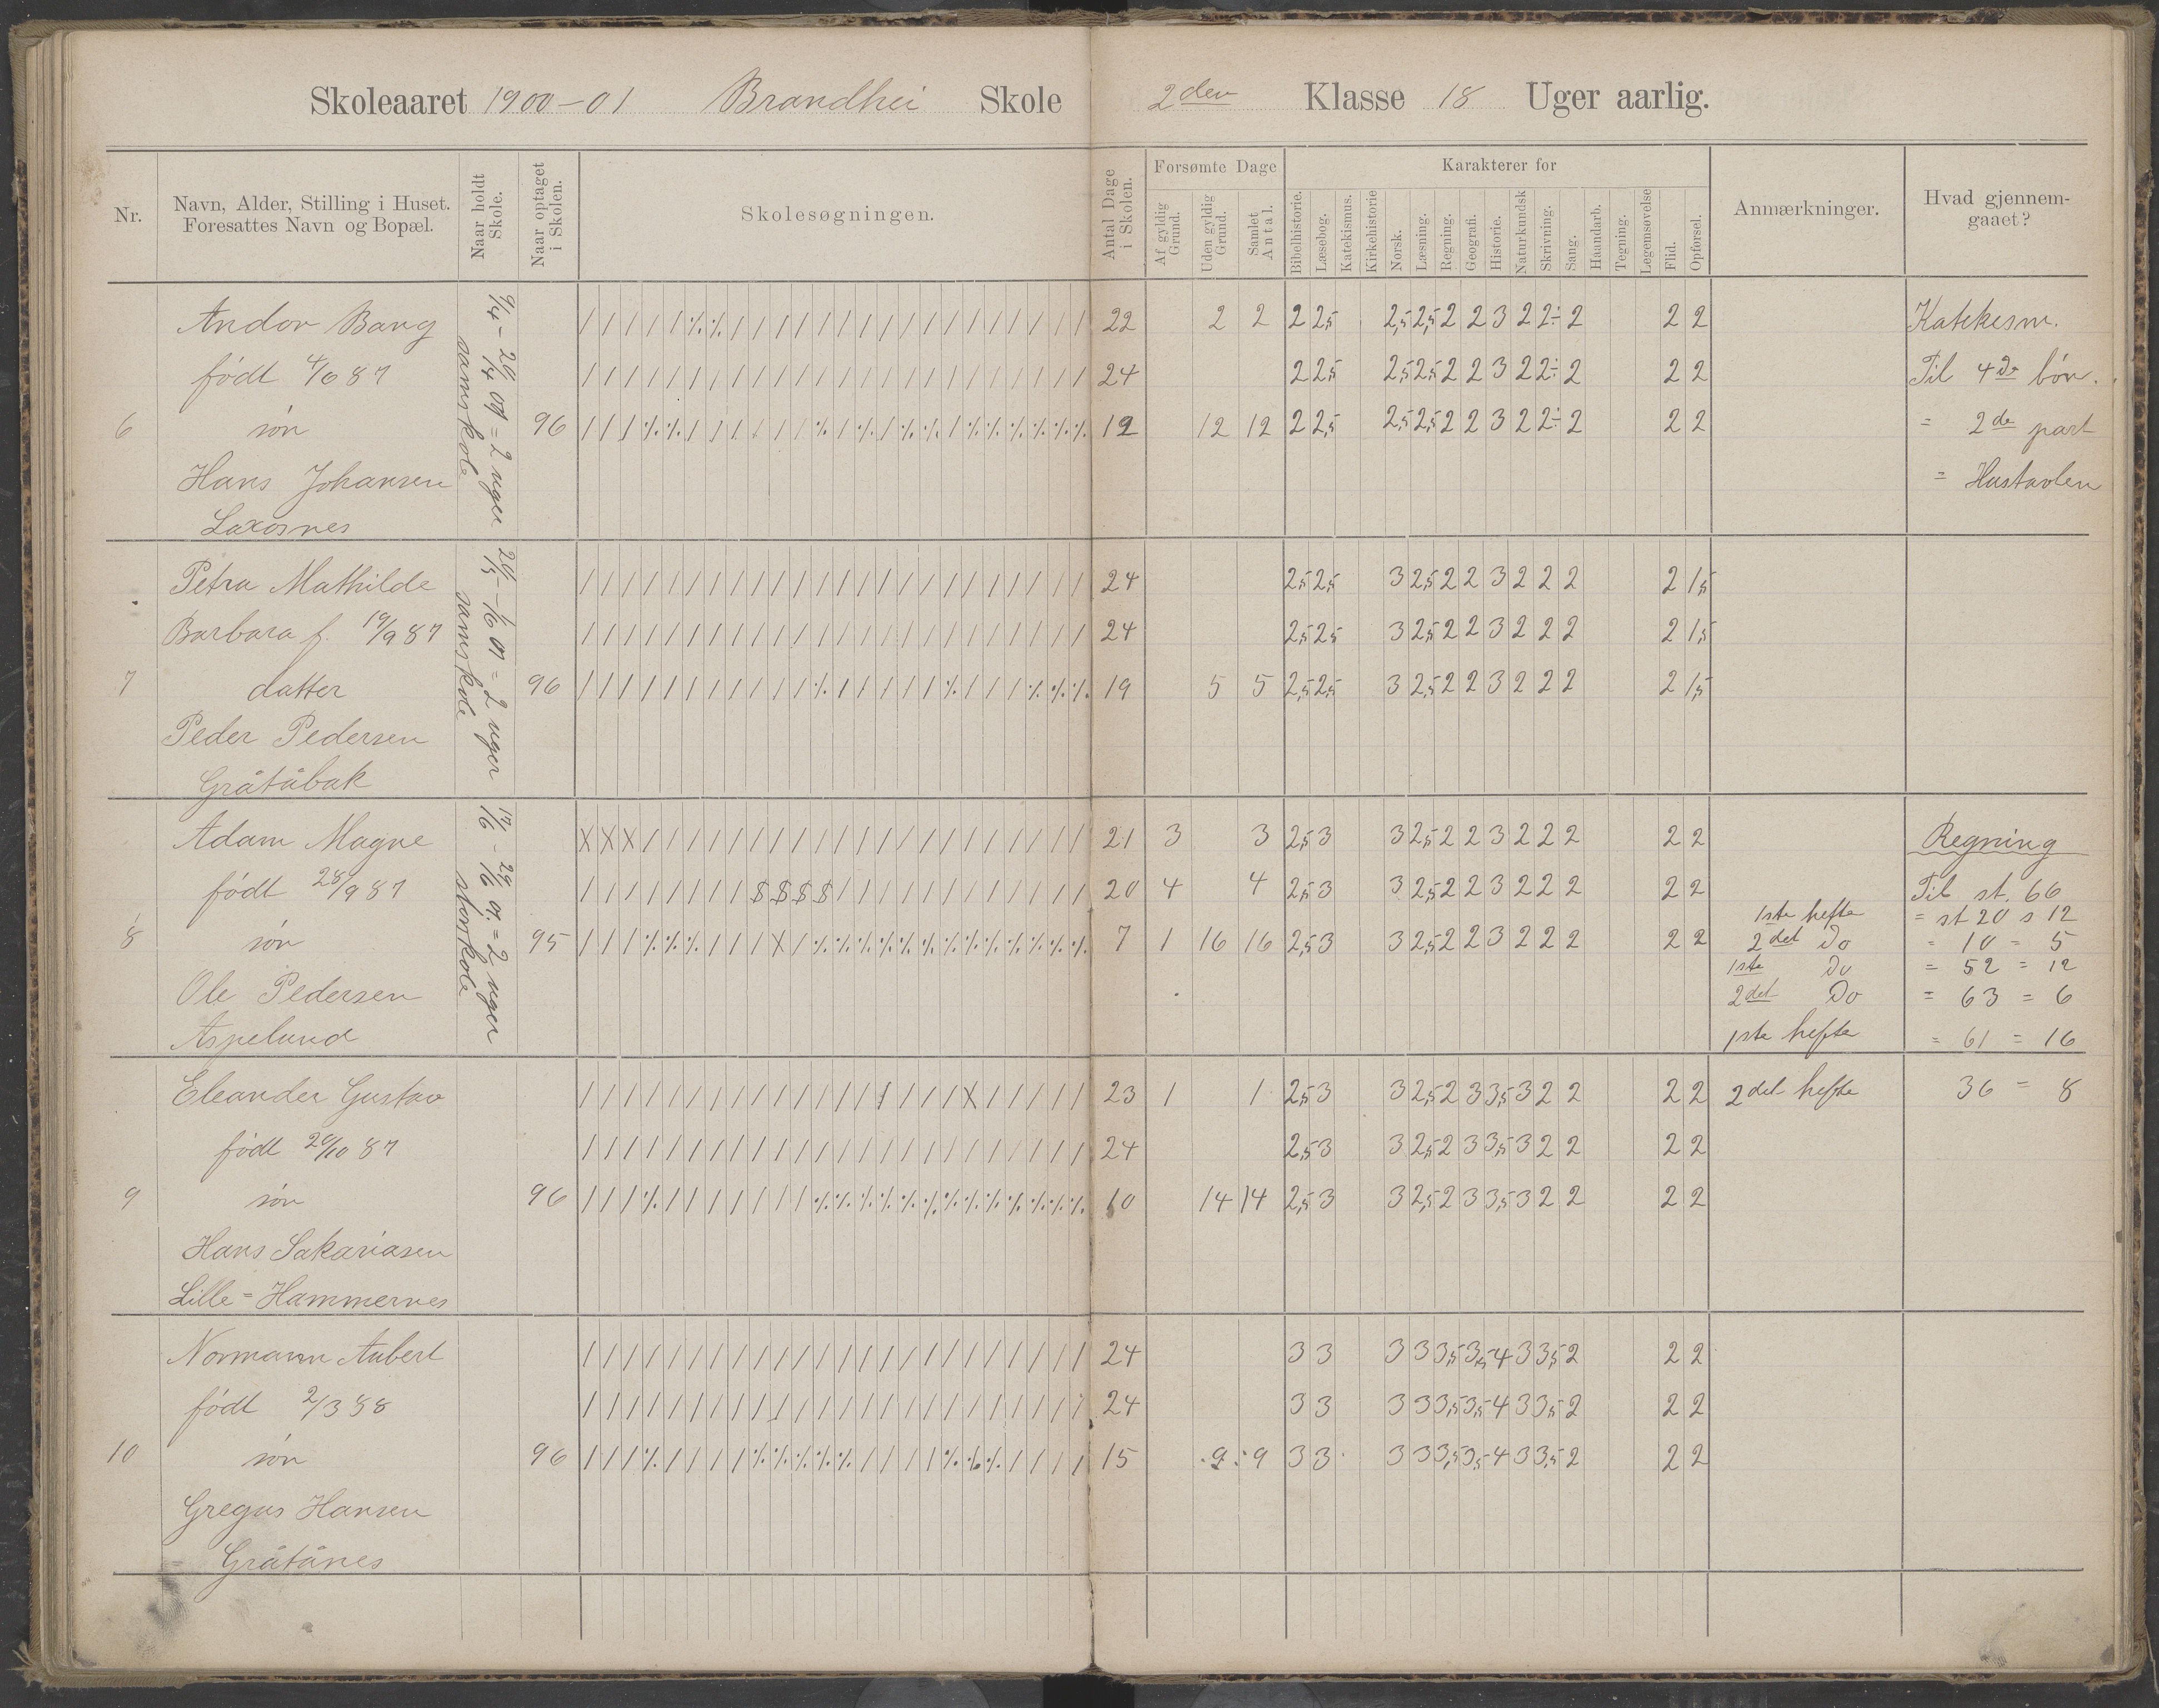 Skoleaaret 1900-01 Brandhei Skole 2den Klasse 18 Uger aarlig.
Nr. Navn, Alder, Stilling i Huset. Foresattes Navn og Bopæl. Naar holdt Skole. Naar optaget i Skolen. Skolesøgningen. Antal Dage i Skolen. Forsømte Dage Af gyldig Grund. Uden gyldig Grund. Samlet Antal. Karakterer for Bibelhistorie. Læsebog. Katekismus. Kirkehistorie Norsk. Læsning. Regning. Geografi. Historie. Naturkundsk Skrivning. Sang. Haandarb. Tegning. Legemsøvelse Flid. Opførsel. Anmærkninger. Hvad gjennemgaaet?
Andor Bang 22 2 2 2 2,5 2,5 2,5 2 2 3 2 2÷ 2 2 2 Katekesm.
født 4/6 87 24 2 2,5 2,5 2,5 2 2 3 2 2÷ 2 2 2 Til 4de bön.
6 sön 96 12 12 12 2 2,5 2,5 2,5 2 2 3 2 2÷ 2 2 2 = 2de part
Hans Johansen = Hustavlen
Laxosnes
samskole = 2 uger
Petra Mathilde 24 2,5 2,5 3 2,5 2 2 3 2 2 2 2 1,5
Barbara f. 19/9 87 24 2,5 2,5 3 2,5 2 2 3 2 2 2 2 1,5
7 datter 96 19 5 5 2,5 2,5 3 2,5 2 2 3 2 2 2 2 1,5
Peder Pedersen
Gråtåbak
samskole = 2 uger
Adam Magne 21 3 3 2,5 3 3 2,5 2 2 3 2 2 2 2 2 Regning
født 28/9 87 20 4 4 2,5 3 3 2,5 2 2 3 2 2 2 2 2 Til st. 66
1ste hefte = st 20 s 12
8 sön 95 7 1 16 16 2,5 3 3 2,5 2 2 3 2 2 2 2 2 2det Do = 10 = 5
1ste Do = 52 = 12
Ole Pedersen 2det Do = 63 = 6
Aspelund 1ste hefte = 61 = 16
17/6 - 29/6 = 2 uger
storskole
Eleander Gustav 23 1 1 2,5 3 3 2,5 2 3 3,5 3 2 2 2 2 2det hefte 36 = 8
født 20/10 87 24 2,5 3 3 2,5 2 3 3,5 3 2 2 2 2
9 sön 96 10 14 14 2,5 3 3 2,5 2 3 3,5 3 2 2 2 2
Hans Sakariasen
Lille-Hammernes
Normann Aubert 24 3 3 3 3 3,5 3,5 4 3 3,5 2 2 2
født 2/3 88 24 3 3 3 3 3,5 3,5 4 3 3,5 2 2 2
10 sön 96 15 9 9 3 3 3 3 3,5 3,5 4 3 3,5 2 2 2
Gregus Hansen
Gråtånes